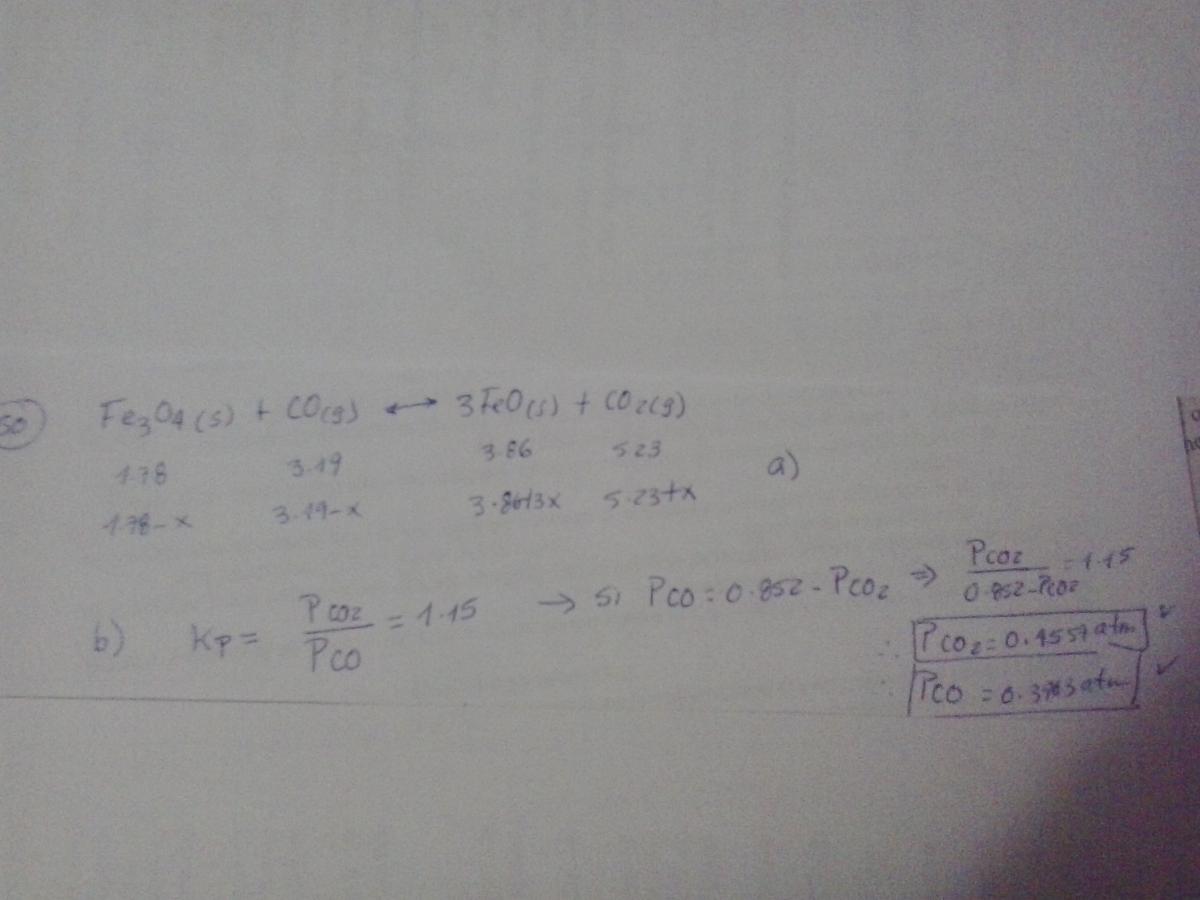 50 Fe3O4(s) + CO(g) ↔ 3FeO(s) + CO2(g)
1.78 3.19 3.86 5.23 a)
1.78-x 3.19-x 3.86+3x 5.23+x
b) Kp = PCO2/PCO = 1.15 → si PCO = 0.852 - PCO2 ⇒ PCO2/0.852-PCO2 = 1.15
∴ PCO2 = 0.4557 atm ✓
∴ PCO = 0.3963 atm ✓